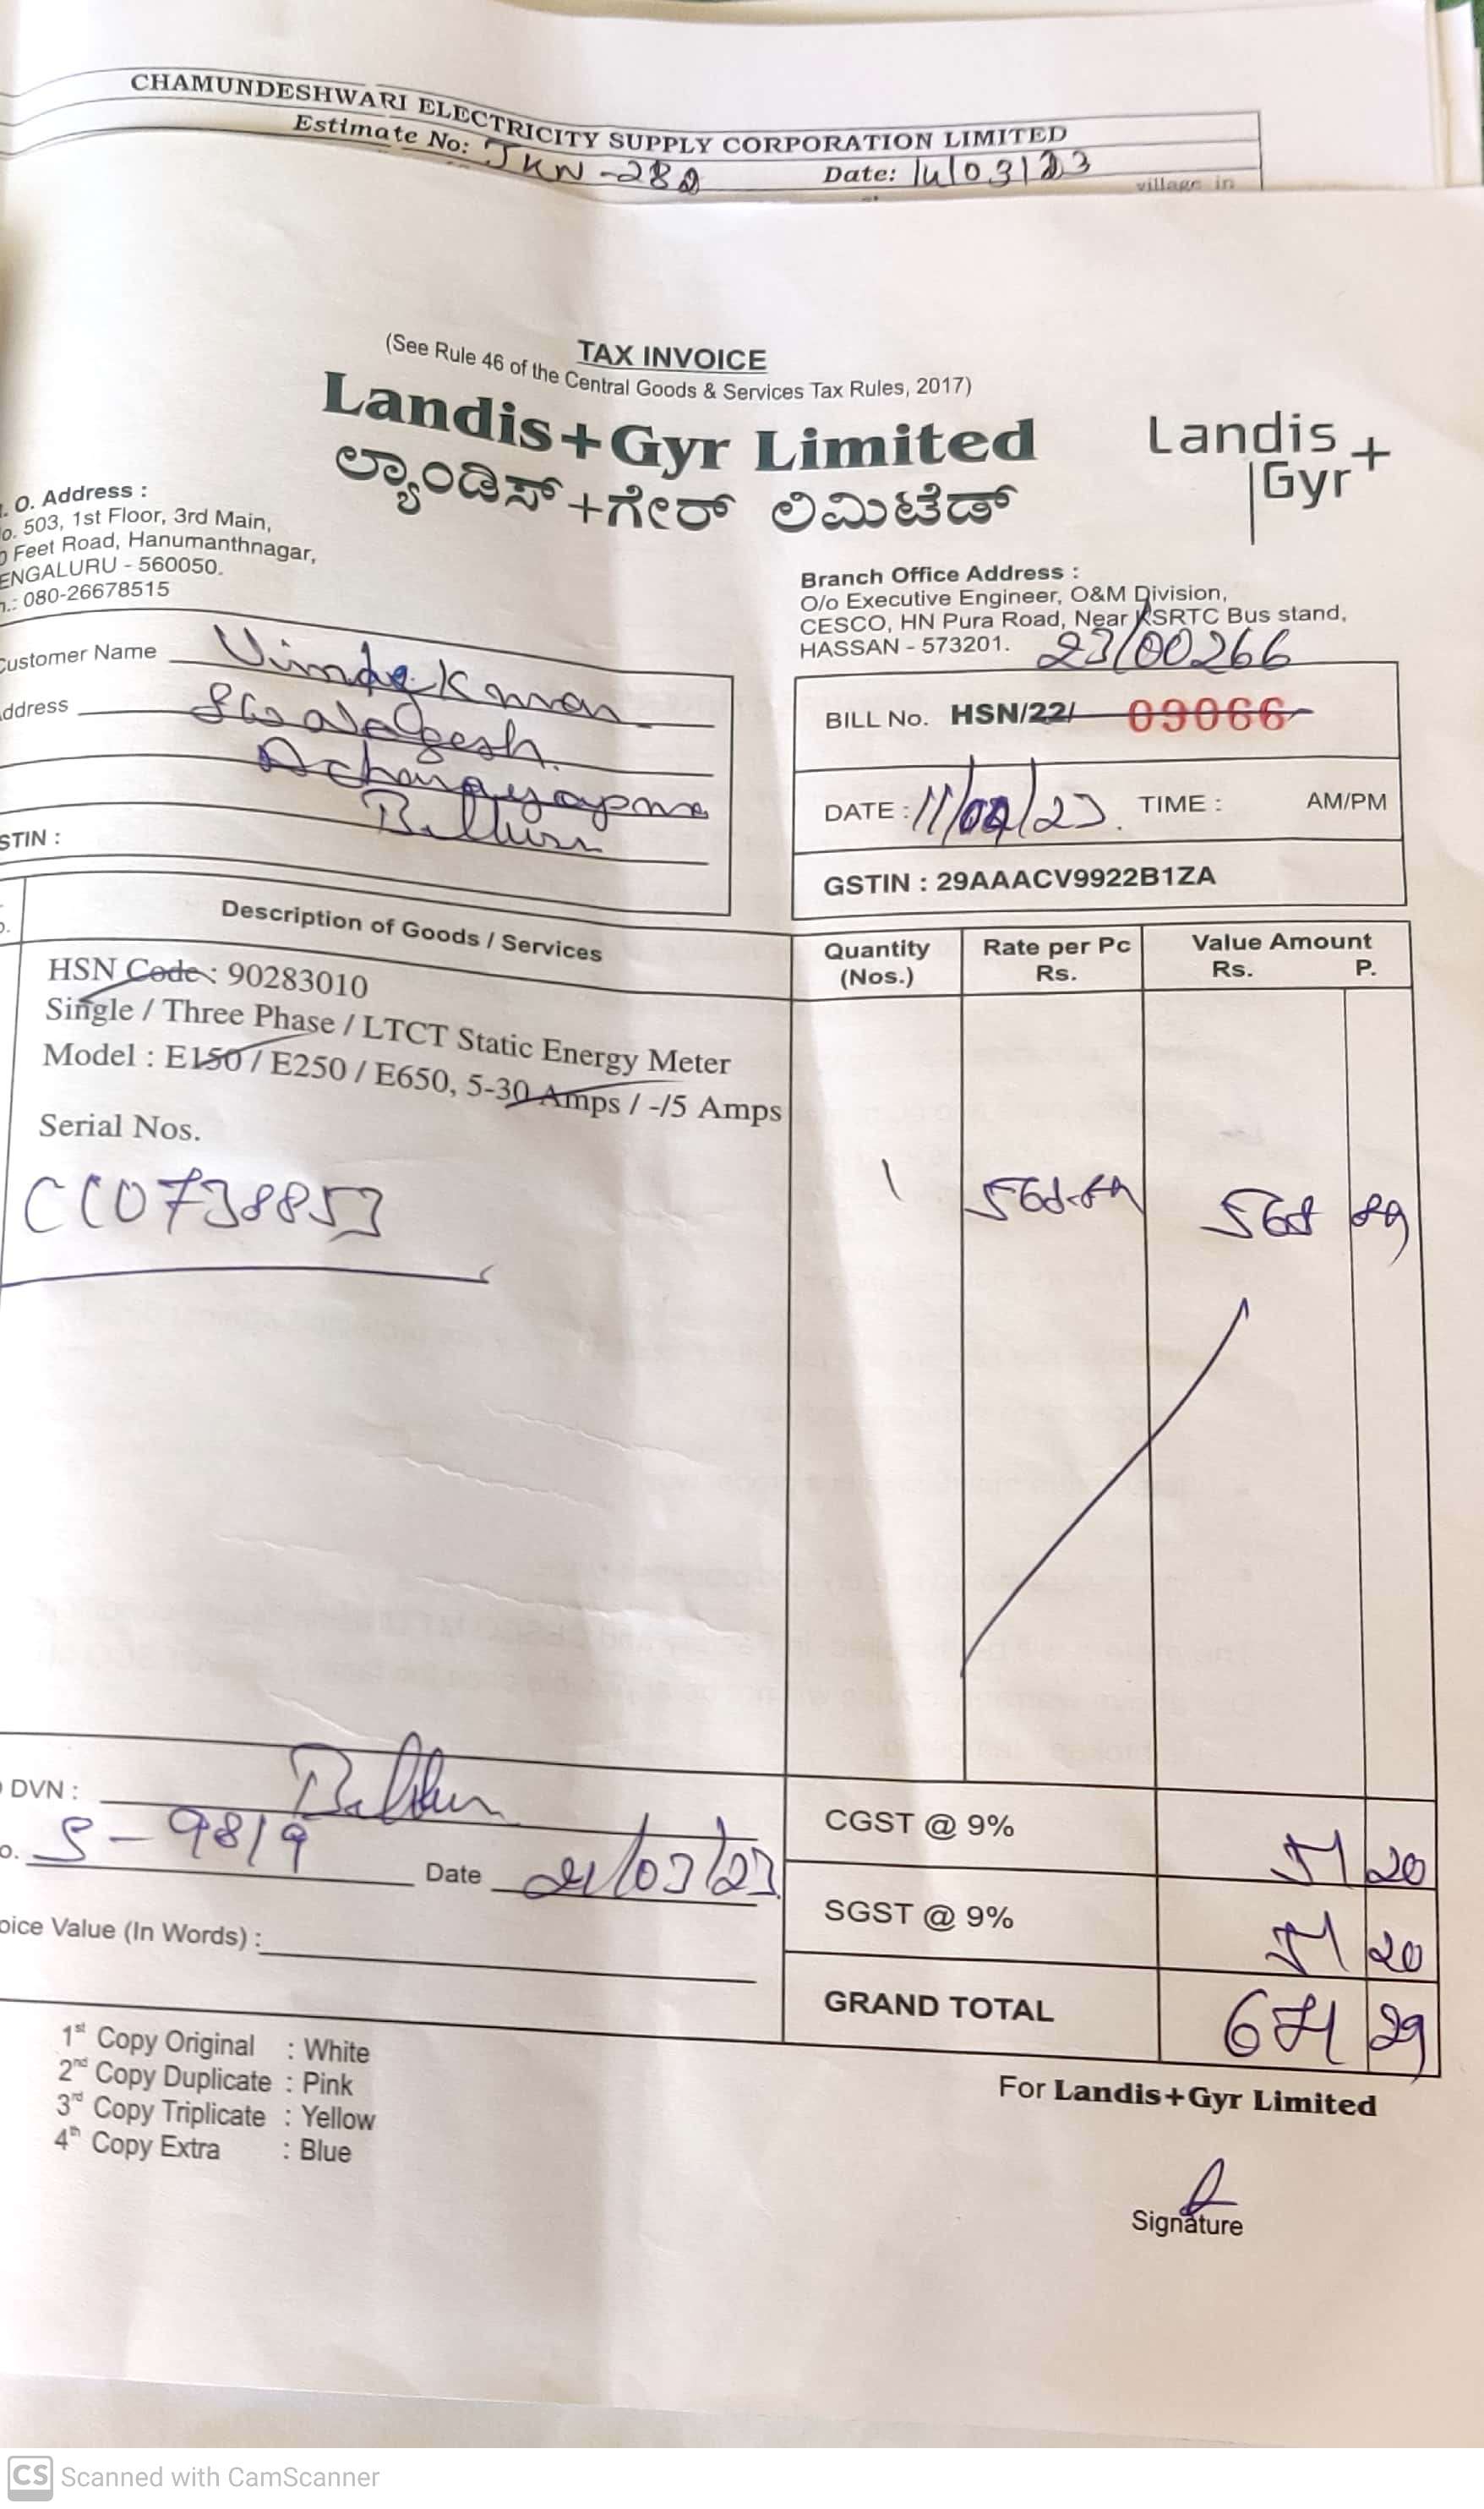 CHAMUNDESHWARI ELECTRICITY SUPPLY CORPORATION LIMITED
Estimate No: JKN-282 Date: 14/03/23
village in
TAX INVOICE
(See Rule 46 of the Central Goods & Services Tax Rules, 2017)
Landis+Gyr Limited
ಲ್ಯಾಂಡಿಸ್+ಗೇರ್ ಲಿಮಿಟೆಡ್
Landis+
Gyr
. O. Address :
o. 503, 1st Floor, 3rd Main,
0 Feet Road, Hanumanthnagar,
ENGALURU - 560050.
.: 080-26678515
Branch Office Address :
O/o Executive Engineer, O&M Division,
CESCO, HN Pura Road, Near KSRTC Bus stand,
HASSAN - 573201.
23/00266
Customer Name
ddress
STIN :
BILL No. HSN/22/ 09066
DATE : 11/04/23. TIME : AM/PM
GSTIN : 29AAACV9922B1ZA
Description of Goods / Services
Quantity (Nos.)
Rate per Pc Rs.
Value Amount
Rs. P.
HSN Code : 90283010
Single / Three Phase / LTCT Static Energy Meter
Model : E150 / E250 / E650, 5-30 Amps / -/5 Amps
Serial Nos.
CC0738853 1 568.89 568 89
DVN :
o. S-9819 Date 21/03/23
oice Value (In Words) :
CGST @ 9% 51 20
SGST @ 9% 51 20
GRAND TOTAL 671 29
1st Copy Original : White
2nd Copy Duplicate : Pink
3rd Copy Triplicate : Yellow
4th Copy Extra : Blue
For Landis+Gyr Limited
Signature
CS Scanned with CamScanner